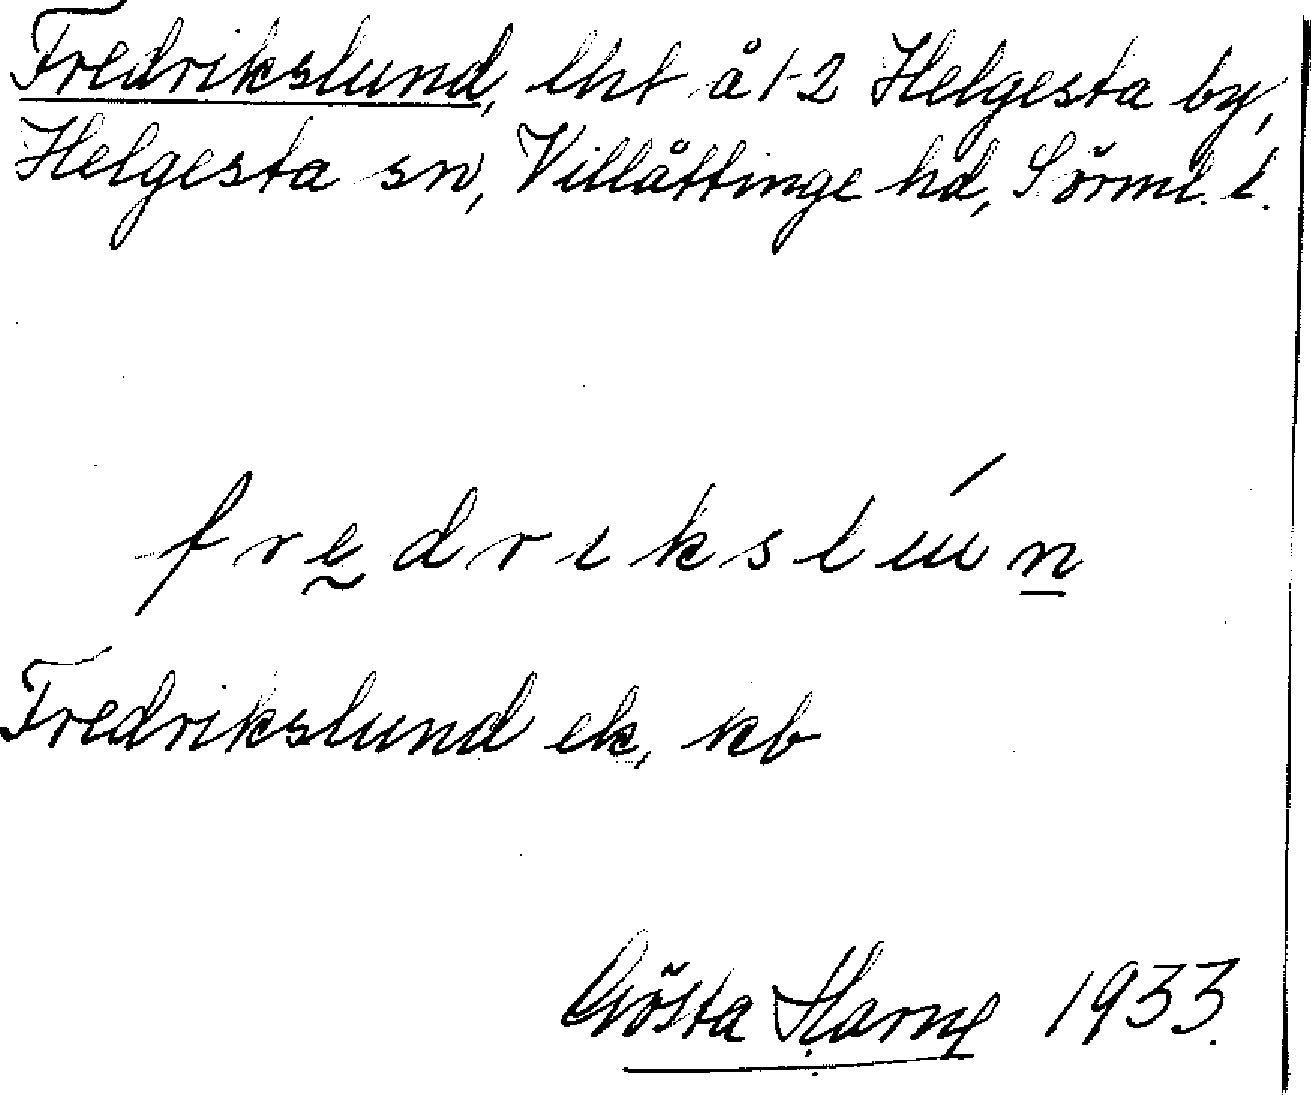 Fredrikslund, lht å 1-2 Helgesta by,
Helgesta sn, Villåttinge hd, Sörml. l.
fredrikslún
Fredrikslund ek, kb
Gösta Harne 1933.